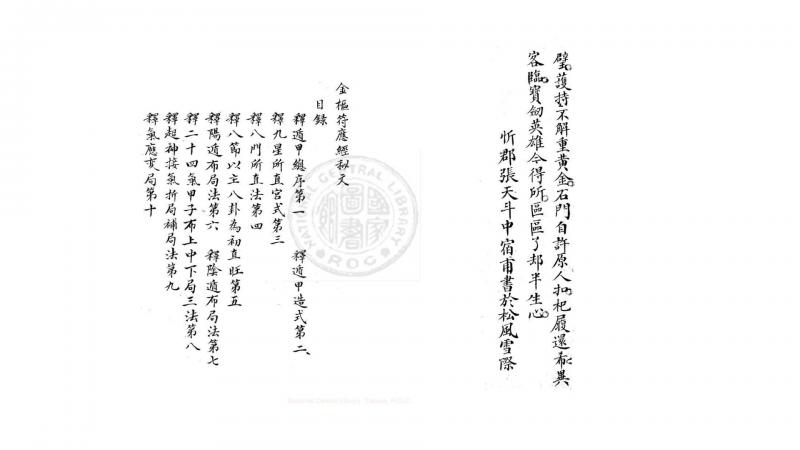 璧護持不解重黃金石門自許原人扣杞履還希異
客臨寶劍英雄今得所區區了却半生心
忻郡張天斗中宿甫書於松風雪際
金樞符應經秘文
目錄
釋遁甲總序第一 釋遁甲造式第二
釋九星所直宮式第三
釋八門所直法第四
釋八節以主八卦為初直旺第五
釋陽遁布局法第六 釋陰遁布局法第七
釋二十四氣甲子布上中下局三法第八
釋超神接氣折局補局法第九
釋氣應亥局第十
NATIONAL CENTRAL LIBRARY
國家圖書館
ROC
National Central Library, Taiwan, R.O.C.